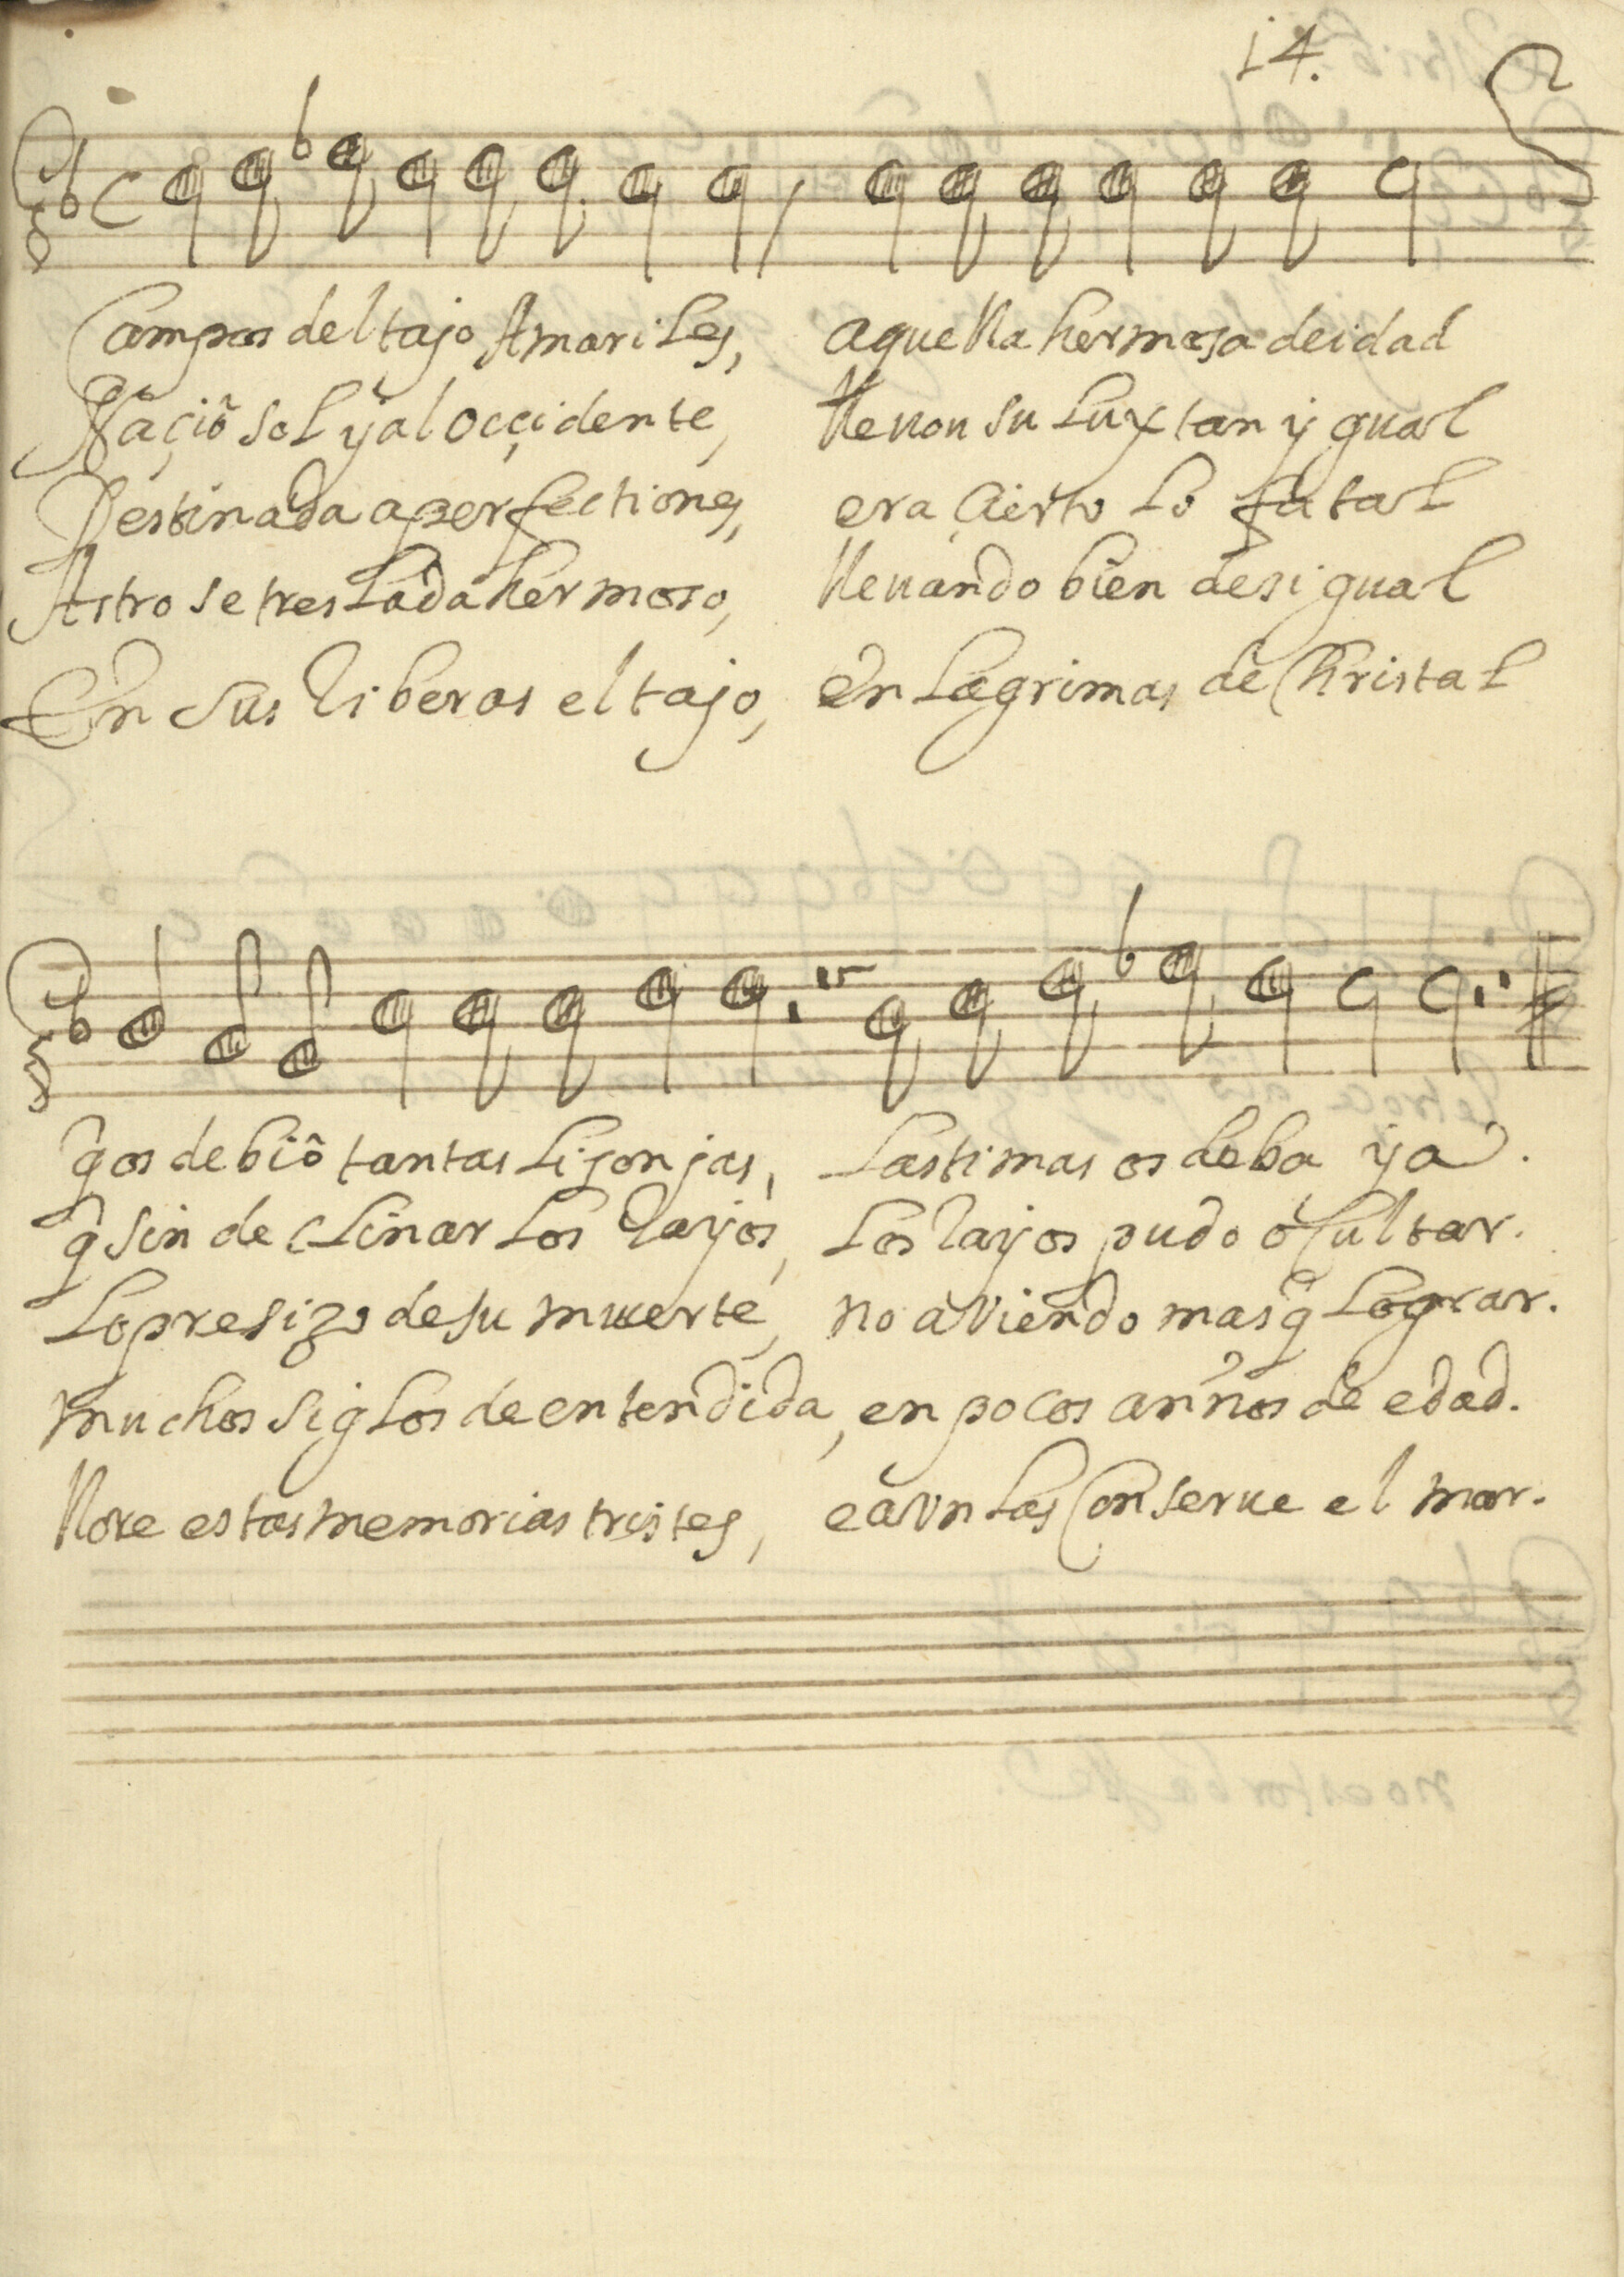 14.
Campos del tajo Amariles, aquella hermosa deidad
Naçiô sol y al ocçidente, lleuou su lux tan ygual
Destinada aperfectiones, era çierto lo fatal
Astro se treslada hermoso, lleuando bien desigual
En sus Riberas el tajo, en lagrimas de Christal
q̃ os debiô tantas lisonjas, lastimas os deba ya.
q̃ sin declinar los Rayos, los Rayos pudo ocultar.
lo presizo de su muerte, no aviendo mas q̃ lograr.
muchos siglos de entendida, en pocos annos de edad.
llore estas memorias tristes, e avn las Conserue el mar.